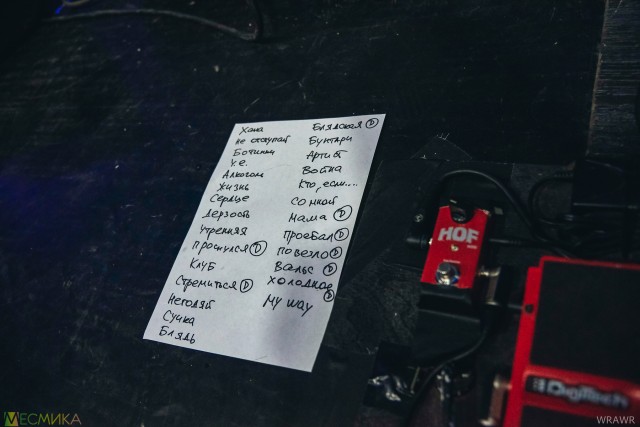 Хана
Не отступай
Ботинки
У.е.
Алкоголь
Жизнь
Сердце
Дерзость
Утренняя
Проснулся D
Клуб
Стремиться D
Негодяй
Сучка
Блядь
Блядская D
Бунтари
Артист
Война
Кто, если....
Со мной
Мама D
Проебал D
Повезло D
Вальс D
Холодное D
My way
HOF
DigiTech
МЕСМИКА
WRAWR